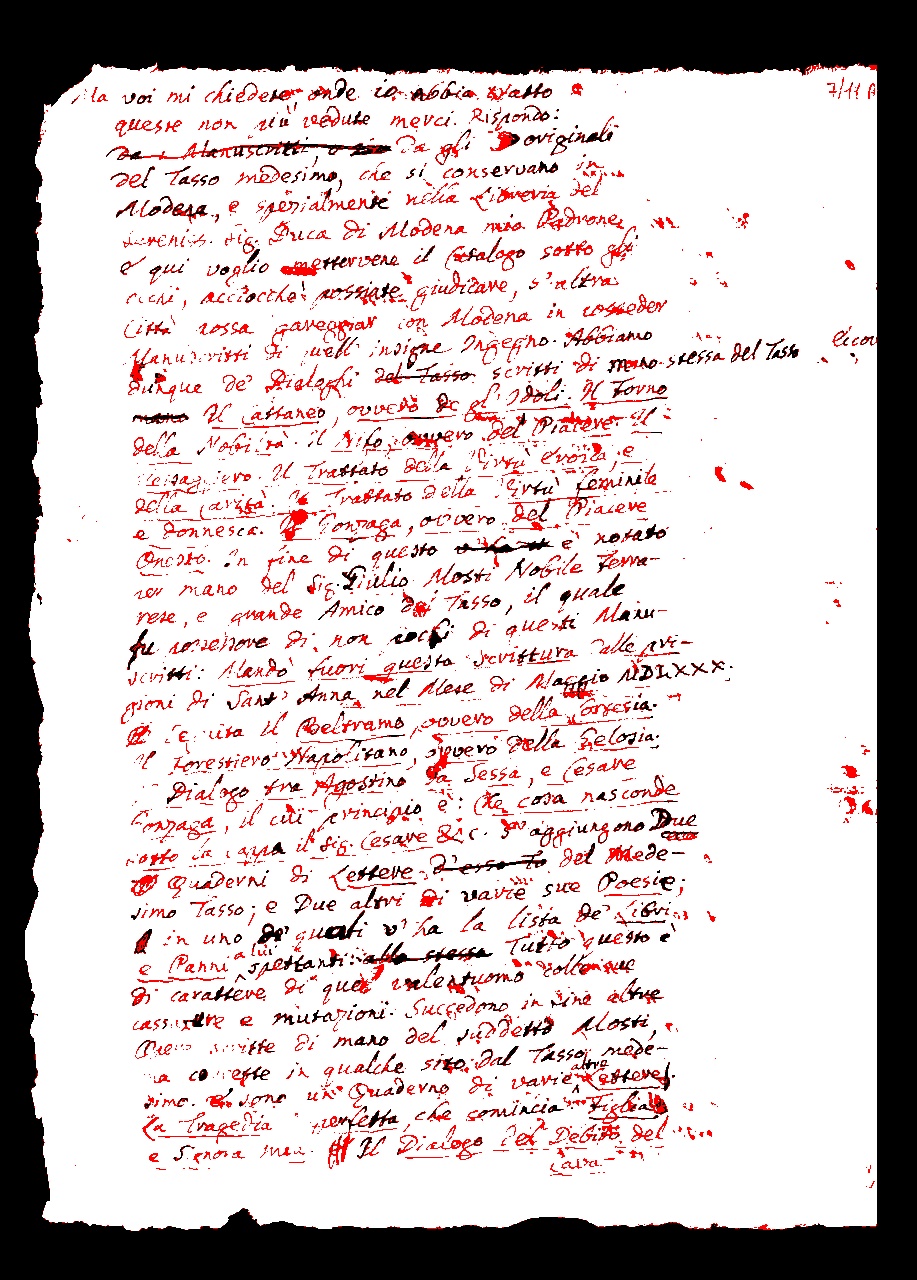 Ma voi mi chiedete, onde io abbia tratto
7/11
queste non più vedute merci. Rispondo:
da i Manuscritti, o sia da gli originali
del Tasso medesimo, che si conservano in
Modena, e spezialmente nella Libreria del
Sereniss. Sig. Duca di Modena mio Padrone,
e qui voglio mettervene il Catalogo sotto gli
occhi, acciocché possiate giudicare, s'altra
Città possa gareggiar con Modena in posseder
Manuscritti di quell'insigne Ingegno. Abbiamo
dunque de' Dialoghi del Tasso scritti di mano stessa del Tasso
mano Il Cattaneo, ovvero de gl'Idoli. Il Forno
della Nobiltà. Il Nifo, ovvero del Piacere. Il
Messaggiero. Il Trattato della Virtù eroica, e
della carità. Il Trattato della Virtù feminile
e donnesca. Il Gonzaga, ovvero del Piacere
Onesto. In fine di questo è notato
per mano del Sig. Giulio Mosti Nobile Ferra-
rese, e grande Amico del Tasso, il quale
fu possessore di non pochi di questi Manu-
scritti: Mandò fuori questa scrittura dalle pri-
gioni di Sant' Anna nel Mese di Maggio MDLXXX.
Seguita il Beltramo, ovvero della Cortesia.
Il Forestiero Napolitano, ovvero della Gelosia.
Dialogo tra Agostino da Sessa, e Cesare
Gonzaga, il cui principio è: Che cosa nasconde
sotto la cappa il Sig. Cesare &c. S' aggiungono Due
Quaderni di Lettere d'esso To del Mede-
simo Tasso; e Due altri di varie sue Poesie;
in uno de' quali v'ha la lista de' Libri,
e Panni a lui spettanti: alla stessa Tutto questo è
di carattere di quel valentuomo colle sue
cassature e mutazioni. Succedono in fine altre
Opere scritte di mano del suddetto Mosti,
ma corrette in qualche sito dal Tasso mede-
simo. E sono un Quaderno di varie altre Lettere.
La Tragedia perfetta, che comincia Figlia
e Signora mia. Il Dialogo del Debito del